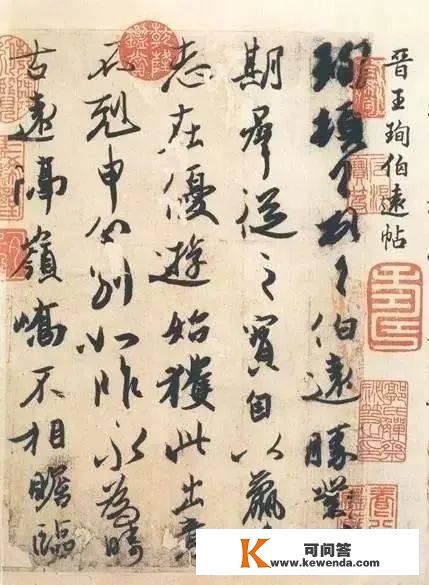 晉王珣伯遠帖
珣頓首頓首伯遠勝業
期群從之寶自以羸
志在優遊始獲此出意
不剋申分別如昨永為疇
古遠隔嶺嶠不相瞻臨
乾隆鑑賞
K 可问答
www.kewenda.com